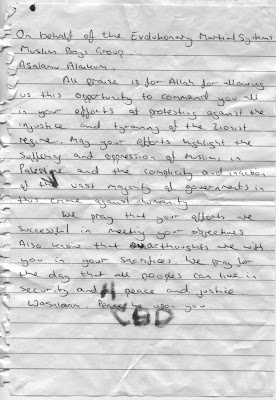 On behalf of the Evolutionary Martial Systems
Muslim Boys Group.
Asalamu Alaikum.
All praise is for Allah for allowing
us this opportunity to command you all
in your efforts at protesting against the
injustice and tyranny of the Zionist
regime. May your efforts highlight the
suffering and oppression of Muslims in
Palestine and the complicity and inaction
of the vast majority of governments in
this crime against humanity
We pray that your efforts are
successful in meeting your objectives
Also know that our thoughts are with
you in your sacrifices. We pray for
the day that all peoples can live in
security and peace and justice
Wasalaam. Peace be upon you